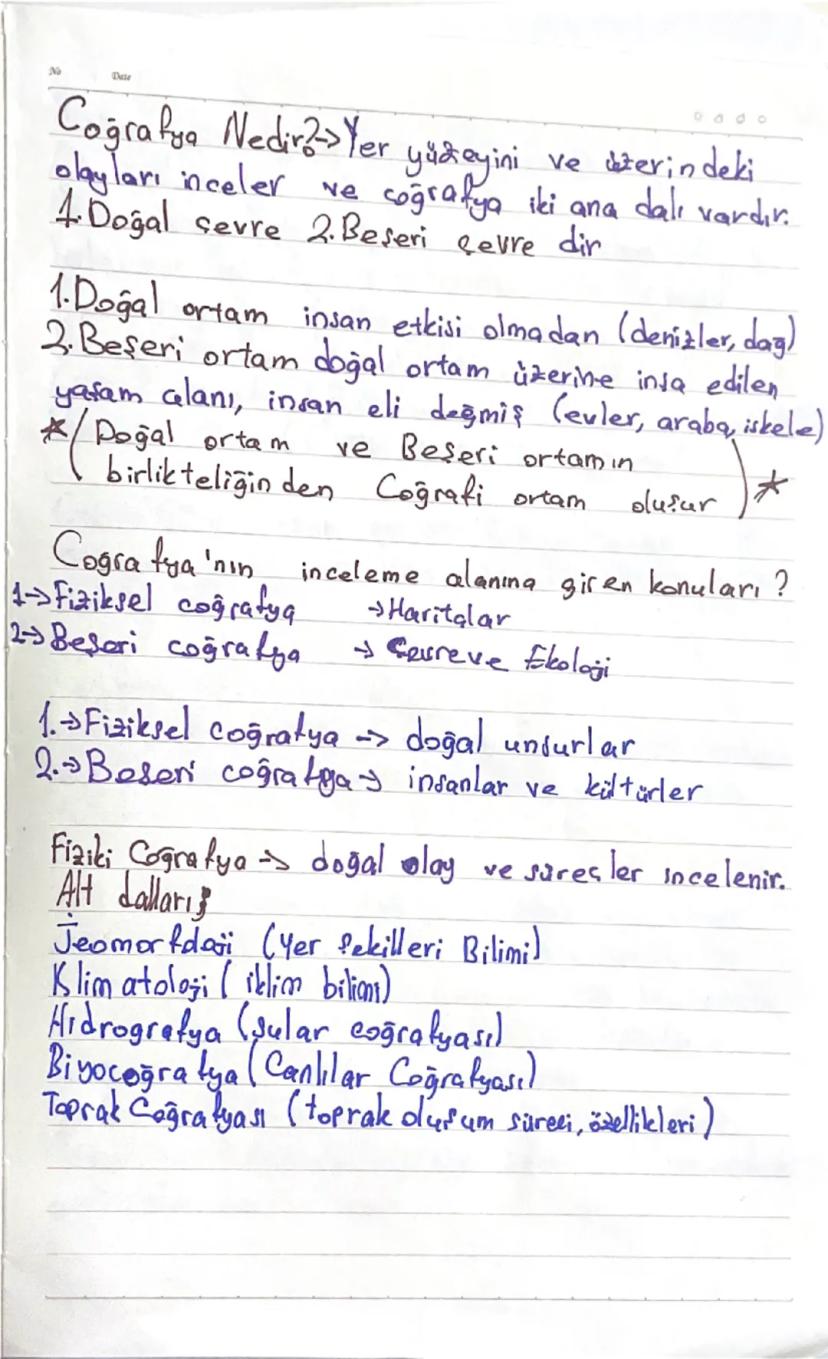 No Date
Coğrafya Nedir? → Yer yüzeyini ve üzerindeki
olayları inceler ve coğrafya iki ana dalı vardır.
1.Doğal çevre 2.Beşeri çevre dir
1.Doğal ortam insan etkisi olmadan (denizler, dağ)
2.Beşeri ortam doğal ortam üzerine inşa edilen
yaşam alanı, insan eli değmiş (evler, araba, iskele)
* ( Doğal ortam ve Beşeri ortamın
birlikteliğinden Coğrafi ortam oluşur ) *
Coğrafya'nın inceleme alanına giren konuları ?
1→ Fiziksel coğrafya → Haritalar
2→ Beşeri coğrafya → Çevre ve Ekoloji
1.→ Fiziksel coğrafya → doğal unsurlar
2.→ Beşeri coğrafya → insanlar ve kültürler
Fiziki Coğrafya → doğal olay ve süreçler incelenir.
Alt dalları;
Jeomorfoloji (Yer şekilleri Bilimi)
Klimatoloji ( iklim bilimi)
Hidrografya (Sular coğrafyası)
Biyocoğrafya (Canlılar Coğrafyası)
Toprak Coğrafyası (toprak oluşum süreci, özellikleri)